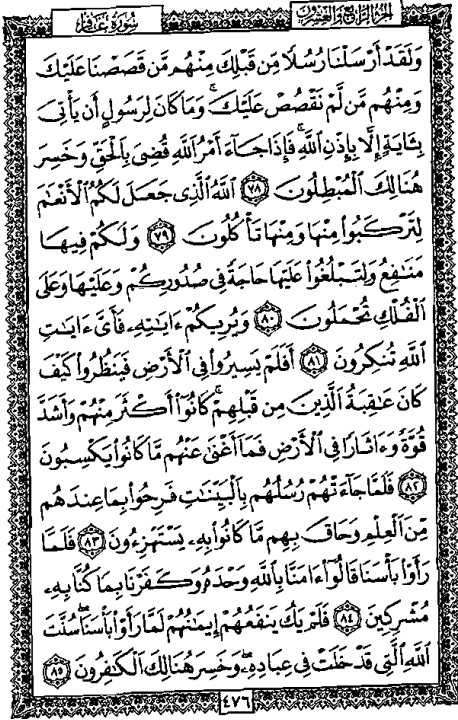 سُورَةُ غَافِرٍ الجُزْءُ الرَّابِعُ وَالعِشْرُونَ
وَلَقَدْ أَرْسَلْنَا رُسُلًا مِّن قَبْلِكَ مِنْهُم مَّن قَصَصْنَا عَلَيْكَ
وَمِنْهُم مَّن لَّمْ نَقْصُصْ عَلَيْكَ ۗ وَمَا كَانَ لِرَسُولٍ أَن يَأْتِيَ
بِـَٔايَةٍ إِلَّا بِإِذْنِ ٱللَّهِ ۚ فَإِذَا جَآءَ أَمْرُ ٱللَّهِ قُضِىَ بِٱلْحَقِّ وَخَسِرَ
هُنَالِكَ ٱلْمُبْطِلُونَ ٧٨ ٱللَّهُ ٱلَّذِى جَعَلَ لَكُمُ ٱلْأَنْعَٰمَ
لِتَرْكَبُوا۟ مِنْهَا وَمِنْهَا تَأْكُلُونَ ٧٩ وَلَكُمْ فِيهَا
مَنَٰفِعُ وَلِتَبْلُغُوا۟ عَلَيْهَا حَاجَةً فِى صُدُورِكُمْ وَعَلَيْهَا وَعَلَى
ٱلْفُلْكِ تُحْمَلُونَ ٨٠ وَيُرِيكُمْ ءَايَٰتِهِۦ فَأَىَّ ءَايَٰتِ
ٱللَّهِ تُنكِرُونَ ٨١ أَفَلَمْ يَسِيرُوا۟ فِى ٱلْأَرْضِ فَيَنظُرُوا۟ كَيْفَ
كَانَ عَٰقِبَةُ ٱلَّذِينَ مِن قَبْلِهِمْ ۚ كَانُوٓا۟ أَكْثَرَ مِنْهُمْ وَأَشَدَّ
قُوَّةً وَءَاثَارًا فِى ٱلْأَرْضِ فَمَآ أَغْنَىٰ عَنْهُم مَّا كَانُوا۟ يَكْسِبُونَ
٨٢ فَلَمَّا جَآءَتْهُمْ رُسُلُهُم بِٱلْبَيِّنَٰتِ فَرِحُوا۟ بِمَا عِندَهُم
مِّنَ ٱلْعِلْمِ وَحَاقَ بِهِم مَّا كَانُوا۟ بِهِۦ يَسْتَهْزِءُونَ ٨٣ فَلَمَّا
رَأَوْا۟ بَأْسَنَا قَالُوٓا۟ ءَامَنَّا بِٱللَّهِ وَحْدَهُۥ وَكَفَرْنَا بِمَا كُنَّا بِهِۦ
مُشْرِكِينَ ٨٤ فَلَمْ يَكُ يَنفَعُهُمْ إِيمَٰنُهُمْ لَمَّا رَأَوْا۟ بَأْسَنَا ۖ سُنَّتَ
ٱللَّهِ ٱلَّتِى قَدْ خَلَتْ فِى عِبَادِهِۦ ۖ وَخَسِرَ هُنَالِكَ ٱلْكَٰفِرُونَ ٨٥
٤٧٦